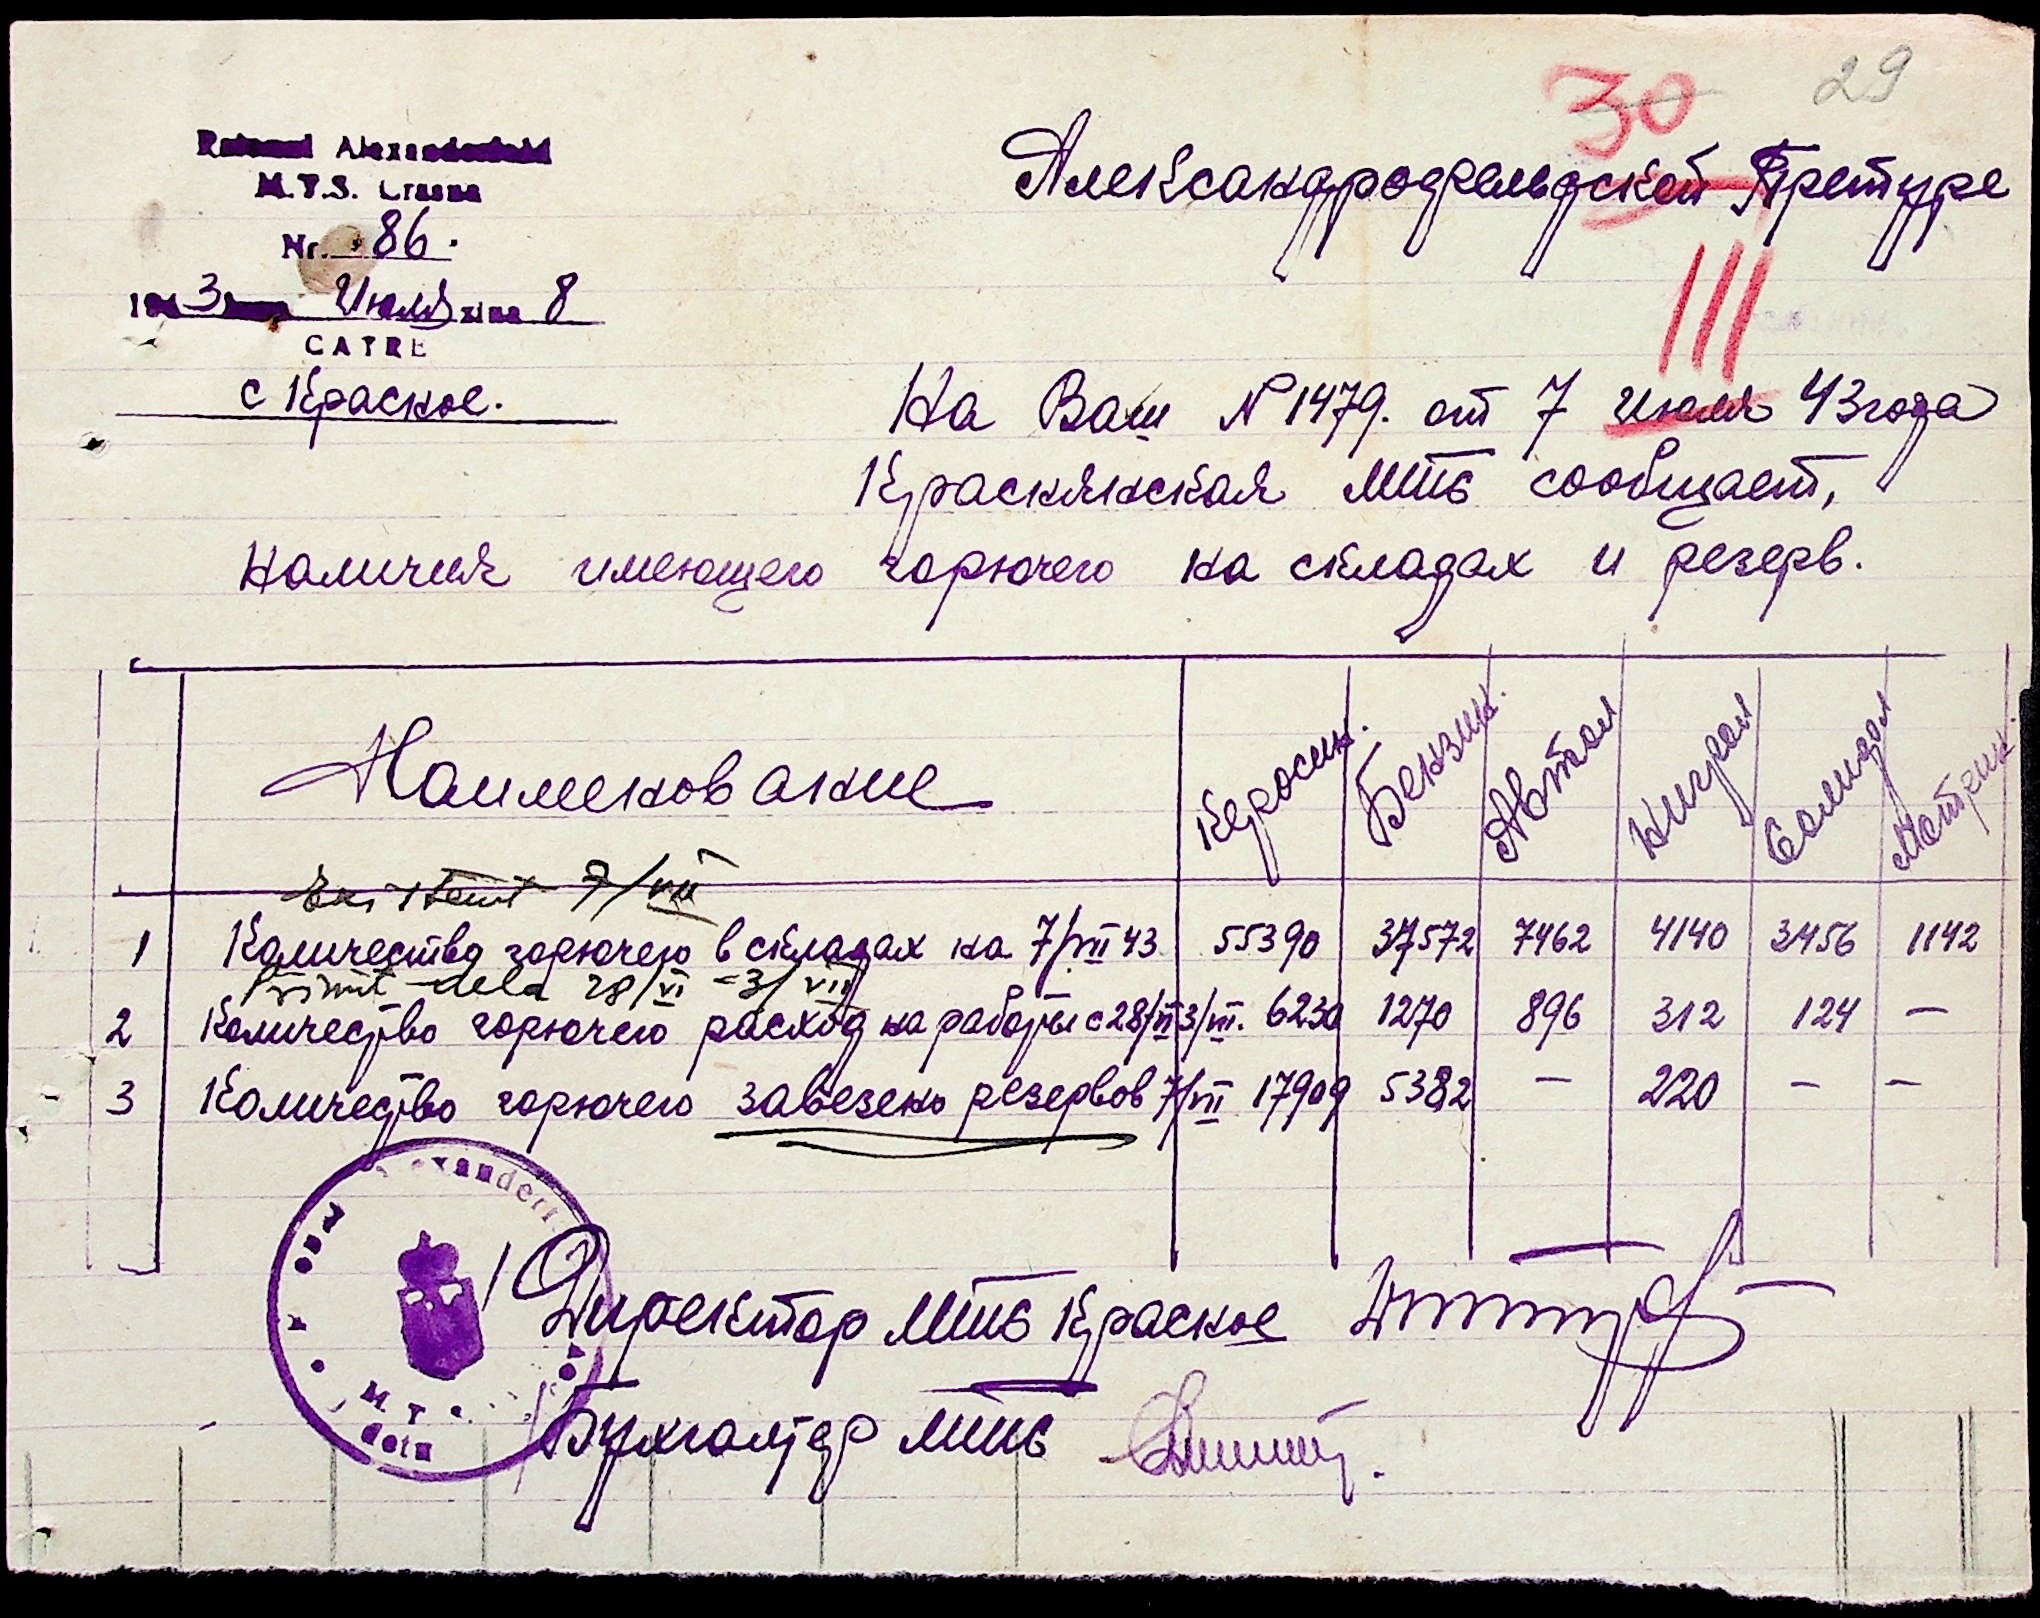 30 29
Raionul Alexanderfeld
M.T.S. Crasna
Nr. 86.
1943 Июля 8
CATRE
с Красное.
Александрофельдской Претуре
III
На Ваш №1479. от 7 июля 43 года
Краснянская МТС сообщает,
наличия имеющего горючего на складах и резерв.
Наименование Керосин. Бензин. Автол Нигрол Солидол Матрин.
Existent 7/VII
1 Количество горючего в складах на 7/VII 43 55390 37572 7462 4140 3456 1142
Primit dela 28/VI - 3/VII
2 Количество горючего расход на работы с 28/VI 3/VII. 6230 1270 896 312 124 —
3 Количество горючего завезено резервов 7/VII 17909 5382 — 220 — —
M T
Директор МТС Красное
Бухгалтер МТС